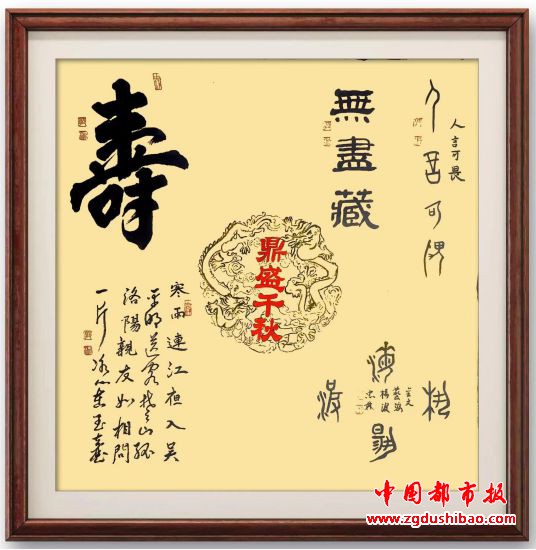 人言可畏
人言可畏
無盡藏
壽
鼎盛千秋
寒雨連江夜入吳
平明送客楚山孤
洛陽親友如相問
一片冰心在玉壺
金文
藝海
楊波
中国都市报
www.zgdushibao.com